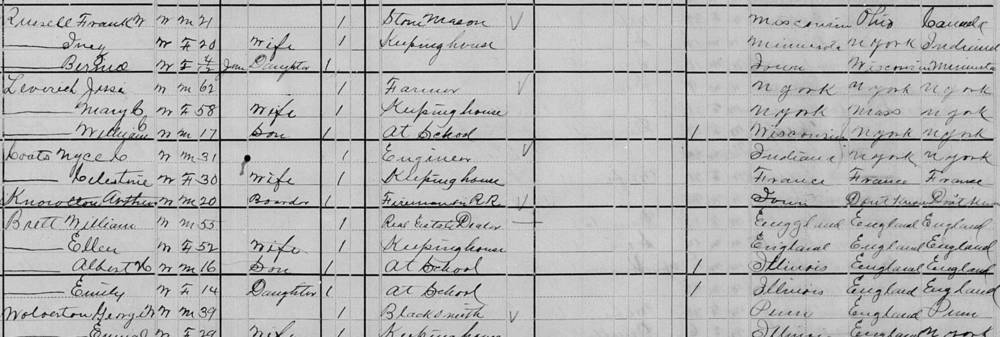 Russell Frank W W M 21 1 Stone Mason Wisconsin Ohio Canada
— Inez W F 20 Wife 1 Keeping house Minnesota N York Indiana
— W F 4/12 Jan Daughter 1 Iowa Wisconsin Minnesota
Leverich Jesse W M 62 1 Farmer N York N York N York
— Mary C W F 58 Wife 1 Keeping house N York Mass N York
— William C W M 17 Son 1 At School 1 Wisconsin N York N York
Coats Nyce C W M 31 1 Engineer Indiana N York N York
— Celestine W F 30 Wife 1 Keeping house France France France
Knowlton Arthur W M 20 Boarder 1 Fireman on R.R. Iowa Don't Know Don't Know
Brett William W M 55 1 Real Estate Dealer Enggland England England
— Ellen W F 52 Wife 1 Keeping house England England England
— Albert W M 16 Son 1 At School 1 Illinois England England
— Emily W F 14 Daughter 1 At School 1 Illinois England England
Wolverton George W W M 39 1 Blacksmith Penn England Penn
— W F 29 Wife 1 Keeping house Illinois England N York